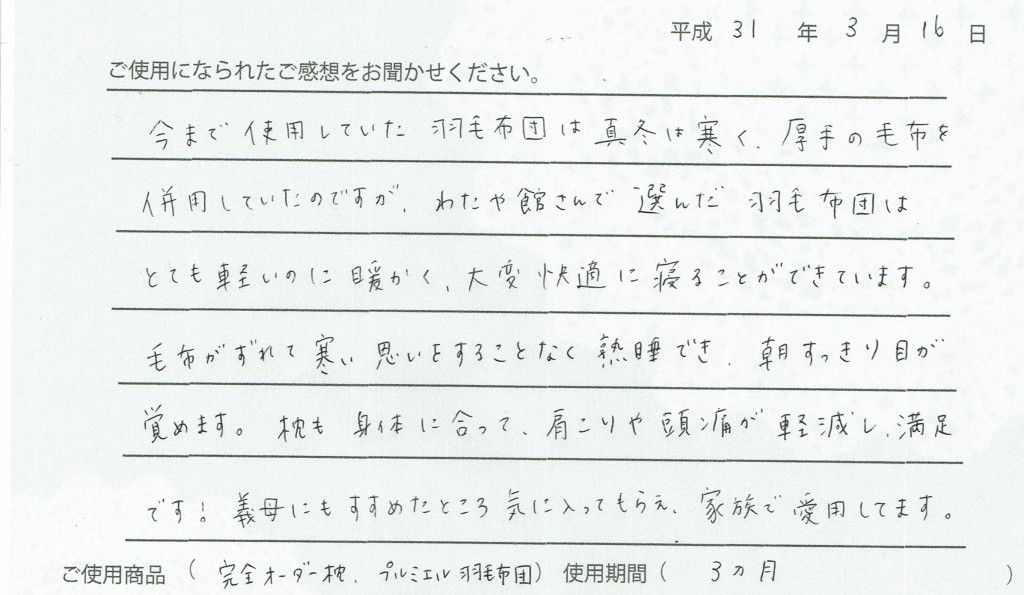 平成 31 年 3 月 16 日
ご使用になられたご感想をお聞かせください。
今まで使用していた羽毛布団は真冬は寒く、厚手の毛布を
併用していたのですが、わたや館さんで選んだ羽毛布団は
とても軽いのに暖かく、大変快適に寝ることができています。
毛布がずれて寒い思いをすることなく熟睡でき、朝すっきり目が
覚めます。枕も身体に合って、肩こりや頭痛が軽減し、満足
です!義母にもすすめたところ気に入ってもらえ、家族で愛用してます。
ご使用商品 ( 完全オーダー枕、プルミエル羽毛布団) 使用期間 ( 3ヵ月 )